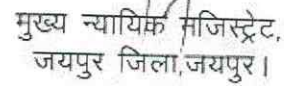 मुख्य न्यायिक मजिस्ट्रेट,
जयपुर जिला,जयपुर।